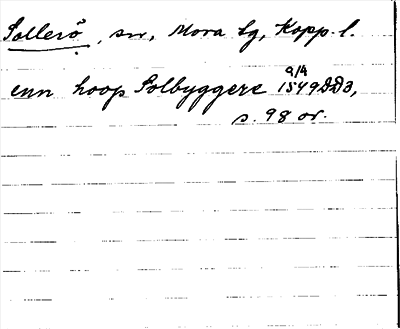 Sollerö, sn, Mora tg, Kopp. l.
enn hoop Solbyggere 9/4 1549 DD3,
s. 98 or.